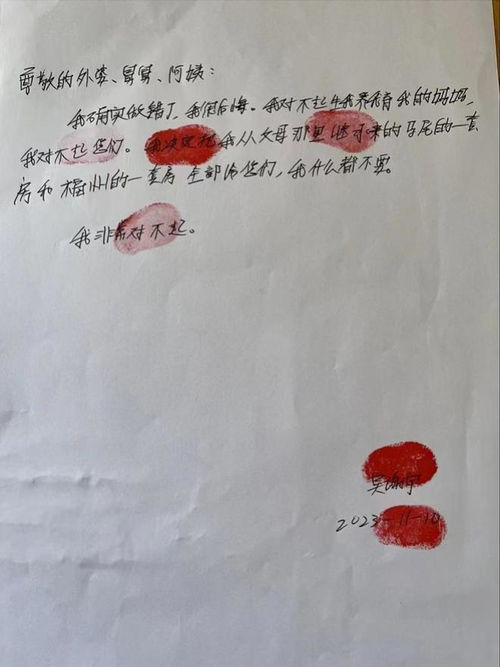 尊敬的外婆、舅舅、阿姨：
我确实做错了，我很后悔。我对不起生我养育我的妈妈，
我对不起您们。我决定把我从父母那里继承来的马尾的一套
房和福州的一套房全部给您们，我什么都不要。
我非常对不起。
吴谢宇
2023-11-10